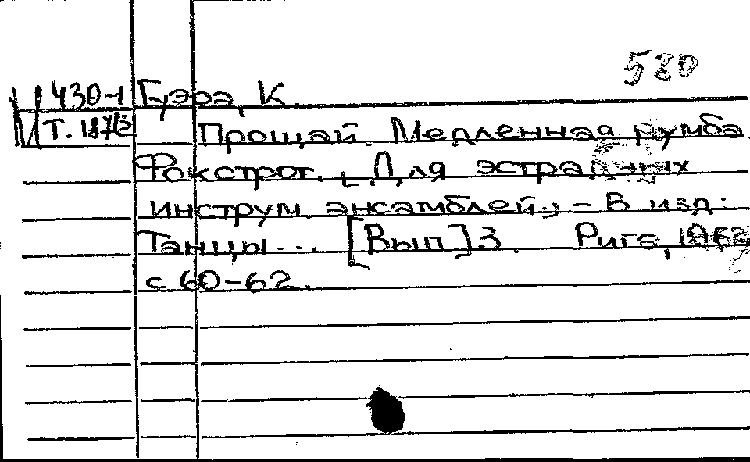 580
М 430-1 Гуэра, К.
Т. 187/3 Прощай. Медленная румба
Фокстрот. [Для эстрадных
инструм. ансамблей]. – В изд.:
Танцы... [Вып.] 3. Рига, 1962
с 60-62.